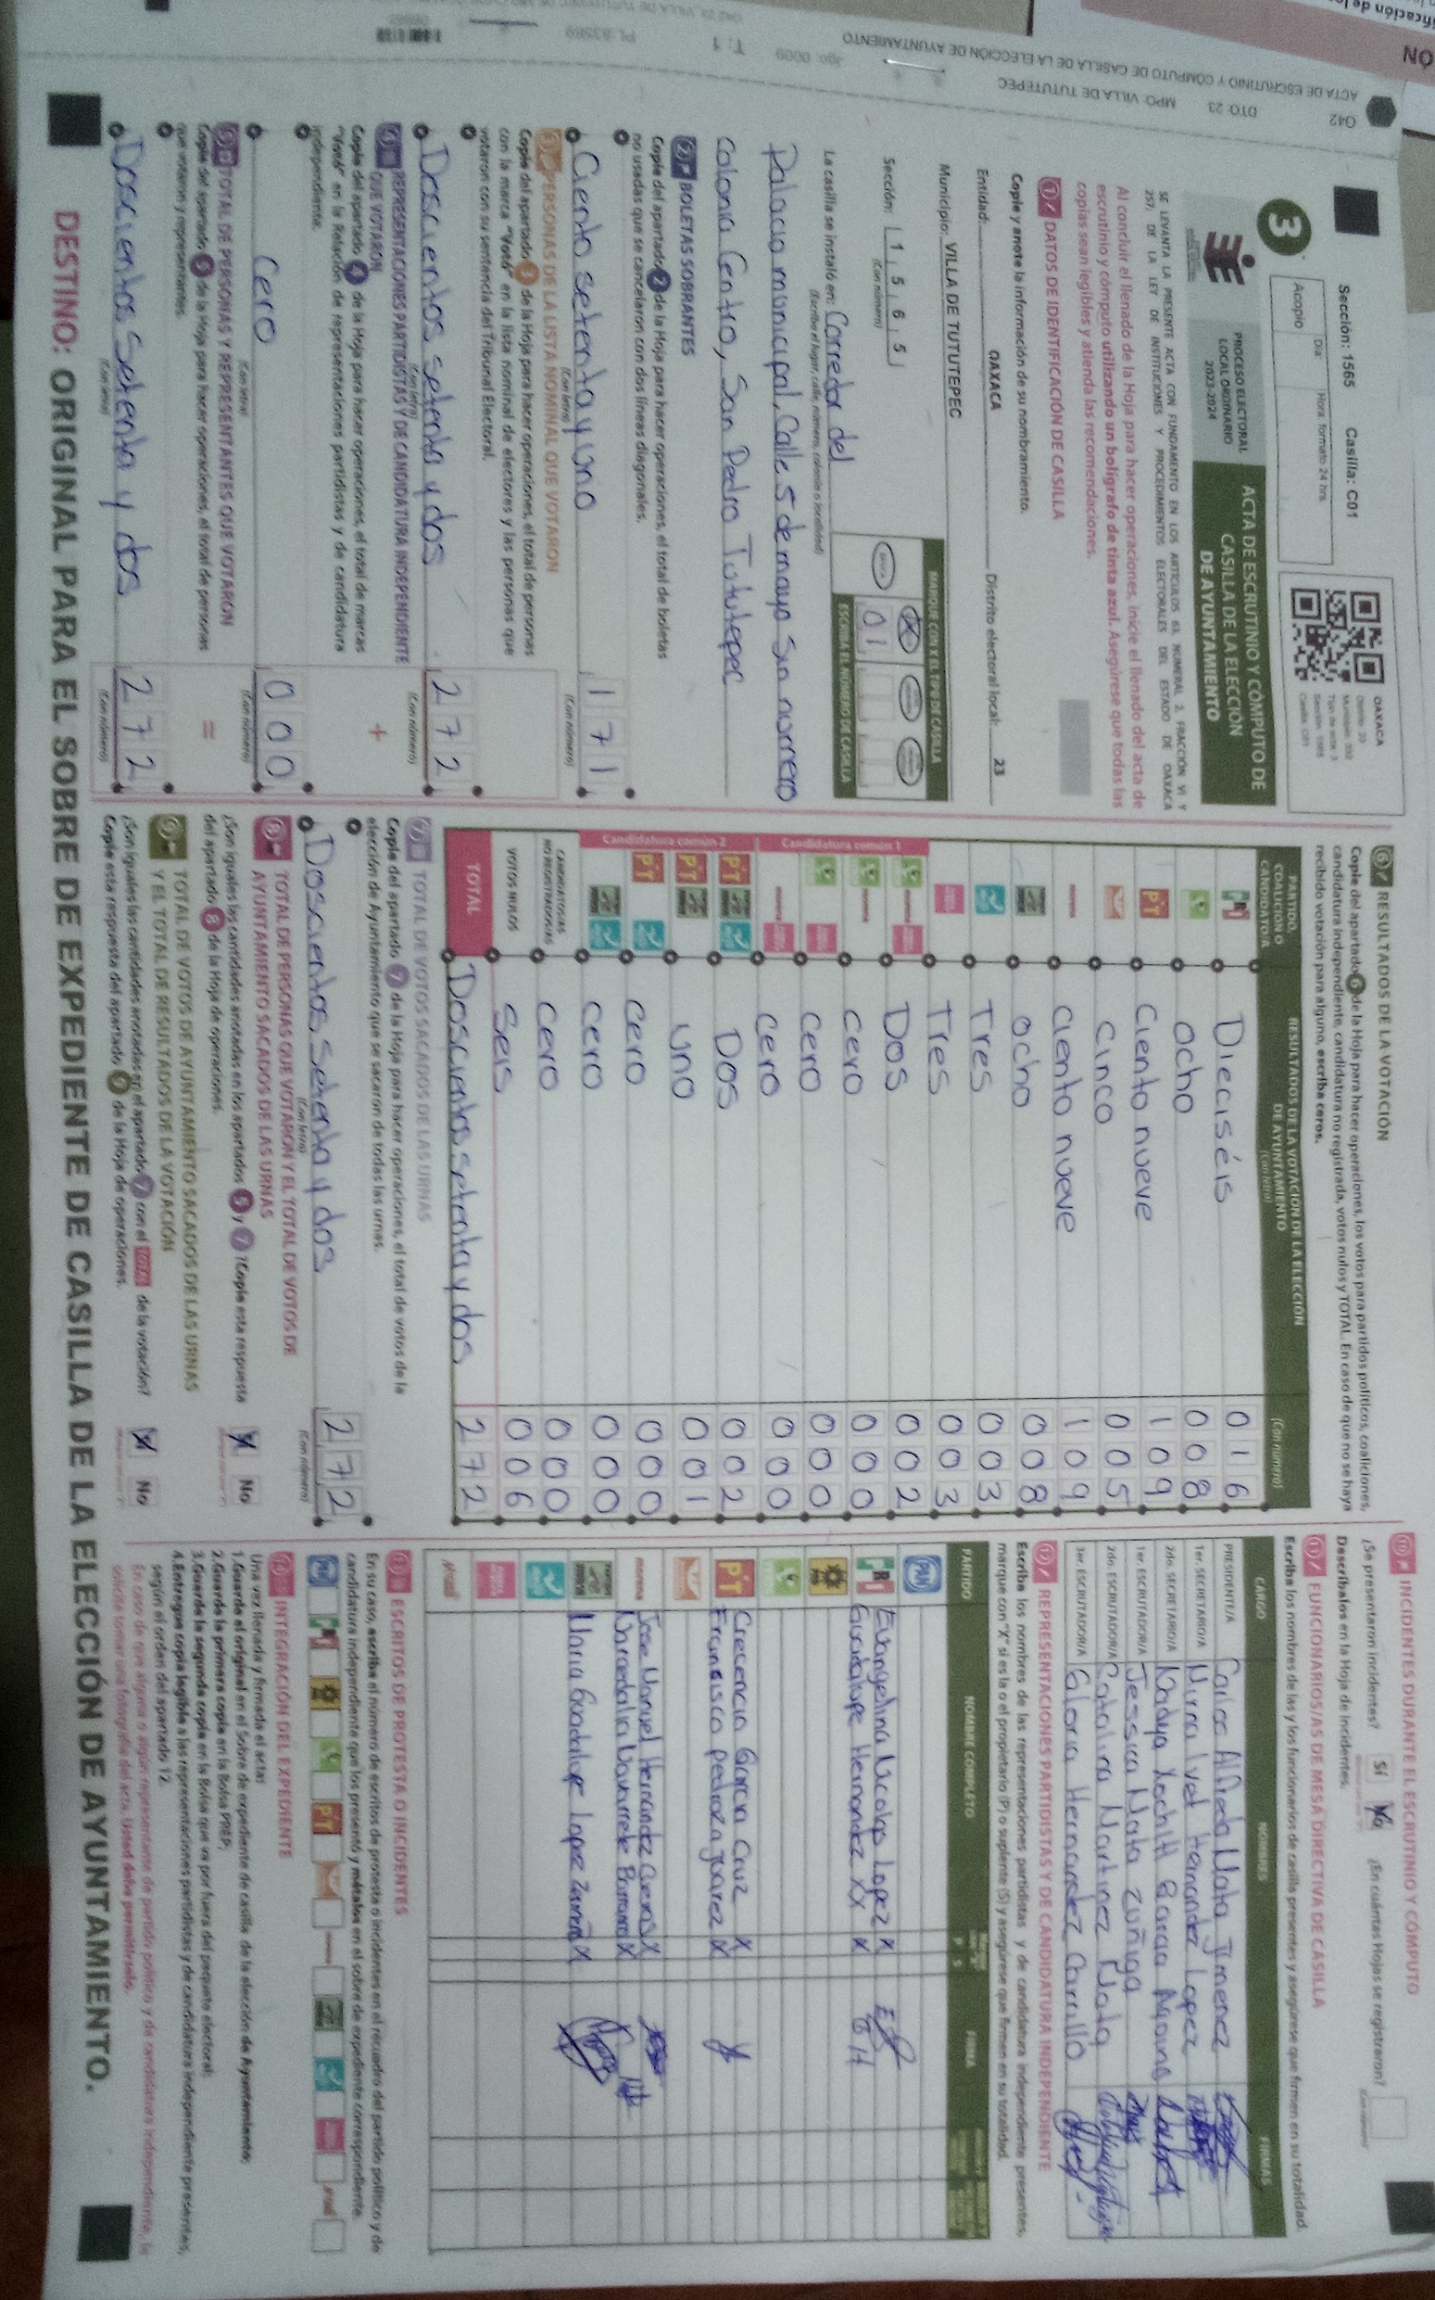 042
DTO: 23
MPO: VILLA DE TUTUTEPEC
ACTA DE ESCRUTINIO Y CÓMPUTO DE CASILLA DE LA ELECCIÓN DE AYUNTAMIENTO
Sección: 1565 Casilla: C01
Día:
Hora: formato 24 hrs.
Acopio
OAXACA
3
PROCESO ELECTORAL
LOCAL ORDINARIO
2023-2024
ACTA DE ESCRUTINIO Y CÓMPUTO DE
CASILLA DE LA ELECCIÓN
DE AYUNTAMIENTO
SE LEVANTA LA PRESENTE ACTA CON FUNDAMENTO EN LOS ARTÍCULOS 63, NUMERAL 2, FRACCIÓN VI Y
257, DE LA LEY DE INSTITUCIONES Y PROCEDIMIENTOS ELECTORALES DEL ESTADO DE OAXACA
Al concluir el llenado de la Hoja para hacer operaciones, inicie el llenado del acta de
escrutinio y cómputo utilizando un bolígrafo de tinta azul. Asegúrese que todas las
copias sean legibles y atienda las recomendaciones.
1 DATOS DE IDENTIFICACIÓN DE CASILLA
Copie y anote la información de su nombramiento.
Entidad: OAXACA Distrito electoral local: 23
Municipio: VILLA DE TUTUTEPEC
Sección: 1 5 6 5
(Con número)
MARQUE CON X EL TIPO DE CASILLA
ESCRIBA EL NÚMERO DE CASILLA
0 1
La casilla se instaló en: Corredor del
(Escriba el lugar, calle, número, colonia o localidad)
Palacio municipal, Calle 5 de mayo Sin numero
Colonia Centro, San Pedro Tututepec
2 BOLETAS SOBRANTES
Copie del apartado 2 de la Hoja para hacer operaciones, el total de boletas
no usadas que se cancelaron con dos líneas diagonales.
Ciento setenta y uno 1 7 1
(Con letra) (Con número)
3 PERSONAS DE LA LISTA NOMINAL QUE VOTARON
Copie del apartado 3 de la Hoja para hacer operaciones, el total de personas
con la marca "Votó" en la lista nominal de electores y las personas que
votaron con su sentencia del Tribunal Electoral.
Doscientos setenta y dos 2 7 2
(Con letra) (Con número)
4 REPRESENTACIONES PARTIDISTAS Y DE CANDIDATURA INDEPENDIENTE
QUE VOTARON
+
Copie del apartado 4 de la Hoja para hacer operaciones, el total de marcas
"Votó" en la Relación de representaciones partidistas y de candidatura
independiente.
Cero 0 0 0
(Con letra) (Con número)
5 TOTAL DE PERSONAS Y REPRESENTANTES QUE VOTARON
=
Copie del apartado 5 de la Hoja para hacer operaciones, el total de personas
que votaron y representantes.
Doscientos Setenta y dos 2 7 2
(Con letra) (Con número)
6 RESULTADOS DE LA VOTACIÓN
Copie del apartado 6 de la Hoja para hacer operaciones, los votos para partidos políticos, coaliciones,
candidatura independiente, candidatura no registrada, votos nulos y TOTAL. En caso de que no se haya
recibido votación para alguno, escriba ceros.
PARTIDO,
COALICIÓN O
CANDIDATO/A
RESULTADOS DE LA VOTACIÓN DE LA ELECCIÓN
DE AYUNTAMIENTO
(Con letra) (Con número)
PRI Dieciséis 0 1 6
ocho 0 0 8
PT Ciento nueve 1 0 9
Cinco 0 0 5
Ciento nueve 1 0 9
ocho 0 0 8
Tres 0 0 3
Tres 0 0 3
Candidatura común 1
Dos 0 0 2
Cero 0 0 0
Cero 0 0 0
Cero 0 0 0
Candidatura común 2
PT Dos 0 0 2
PT uno 0 0 1
PT Cero 0 0 0
Cero 0 0 0
CANDIDATOS/AS
NO REGISTRADOS/AS
Cero 0 0 0
VOTOS NULOS Seis 0 0 6
TOTAL Doscientos setenta y dos 2 7 2
7 TOTAL DE VOTOS SACADOS DE LAS URNAS
Copie del apartado 7 de la Hoja para hacer operaciones, el total de votos de la
elección de Ayuntamiento que se sacaron de todas las urnas.
Doscientos Setenta y dos 2 7 2
(Con letra) (Con número)
8 TOTAL DE PERSONAS QUE VOTARON Y EL TOTAL DE VOTOS DE
AYUNTAMIENTO SACADOS DE LAS URNAS
¿Son iguales las cantidades anotadas en los apartados 5 y 7? Copie esta respuesta
del apartado 8 de la Hoja de operaciones.
No
9 TOTAL DE VOTOS DE AYUNTAMIENTO SACADOS DE LAS URNAS
Y EL TOTAL DE RESULTADOS DE LA VOTACIÓN
¿Son iguales las cantidades anotadas en el apartado 7 con el TOTAL de la votación?
Copie esta respuesta del apartado 9 de la Hoja de operaciones.
No
10 INCIDENTES DURANTE EL ESCRUTINIO Y CÓMPUTO
¿Se presentaron incidentes? Sí No ¿En cuántas Hojas se registraron?
Descríbalos en la Hoja de incidentes.
11 FUNCIONARIOS/AS DE MESA DIRECTIVA DE CASILLA
Escriba los nombres de las y los funcionarios de casilla presentes y asegúrese que firmen en su totalidad.
CARGO NOMBRES FIRMAS
PRESIDENTE/A Carlos Alfredo Mata Jimenez
1er. SECRETARIO/A Mirna Ivet Hernandez Lopez
2do. SECRETARIO/A Nadeya Xochitl Garcia Aquino
1er. ESCRUTADOR/A Jessica Mata Zuñiga
2do. ESCRUTADOR/A Catalina Martinez Mata
3er. ESCRUTADOR/A Gloria Hernandez Carrillo
12 REPRESENTACIONES PARTIDISTAS Y DE CANDIDATURA INDEPENDIENTE
Escriba los nombres de las representaciones partidistas y de candidatura independiente presentes,
marque con "X" si es la o el propietario (P) o suplente (S) y asegúrese que firmen en su totalidad.
PARTIDO NOMBRE COMPLETO P S FIRMA
PAN
PRI Evangelina Nicolas Lopez X
Guadalupe Hernandez XX X G H
PT Crecencio Garcia Cruz X
Francisco pedroza Juarez X
morena Jose Manuel Hernández Cuevas X
Maria Guadalupe Lopez X
13 ESCRITOS DE PROTESTA O INCIDENTES
En su caso, escriba el número de escritos de protesta o incidentes en el recuadro del partido político y de
candidatura independiente que los presentó y métalos en el sobre de expediente correspondiente.
PAN PRI PT
14 INTEGRACIÓN DEL EXPEDIENTE
Una vez llenada y firmada el acta:
1.Guarde el original en el Sobre de expediente de casilla de la elección de Ayuntamiento;
2.Guarde la primera copia en la Bolsa PREP;
3.Guarde la segunda copia en la Bolsa que va por fuera del paquete electoral;
4.Entregue copia legible a las representaciones partidistas y de candidatura independiente presentes,
según el orden del apartado 12.
En caso de que alguna o algún representante de partido político y de candidatura independiente, le
solicite tomar una fotografía del acta. Usted debe permitírselo.
DESTINO: ORIGINAL PARA EL SOBRE DE EXPEDIENTE DE CASILLA DE LA ELECCIÓN DE AYUNTAMIENTO.